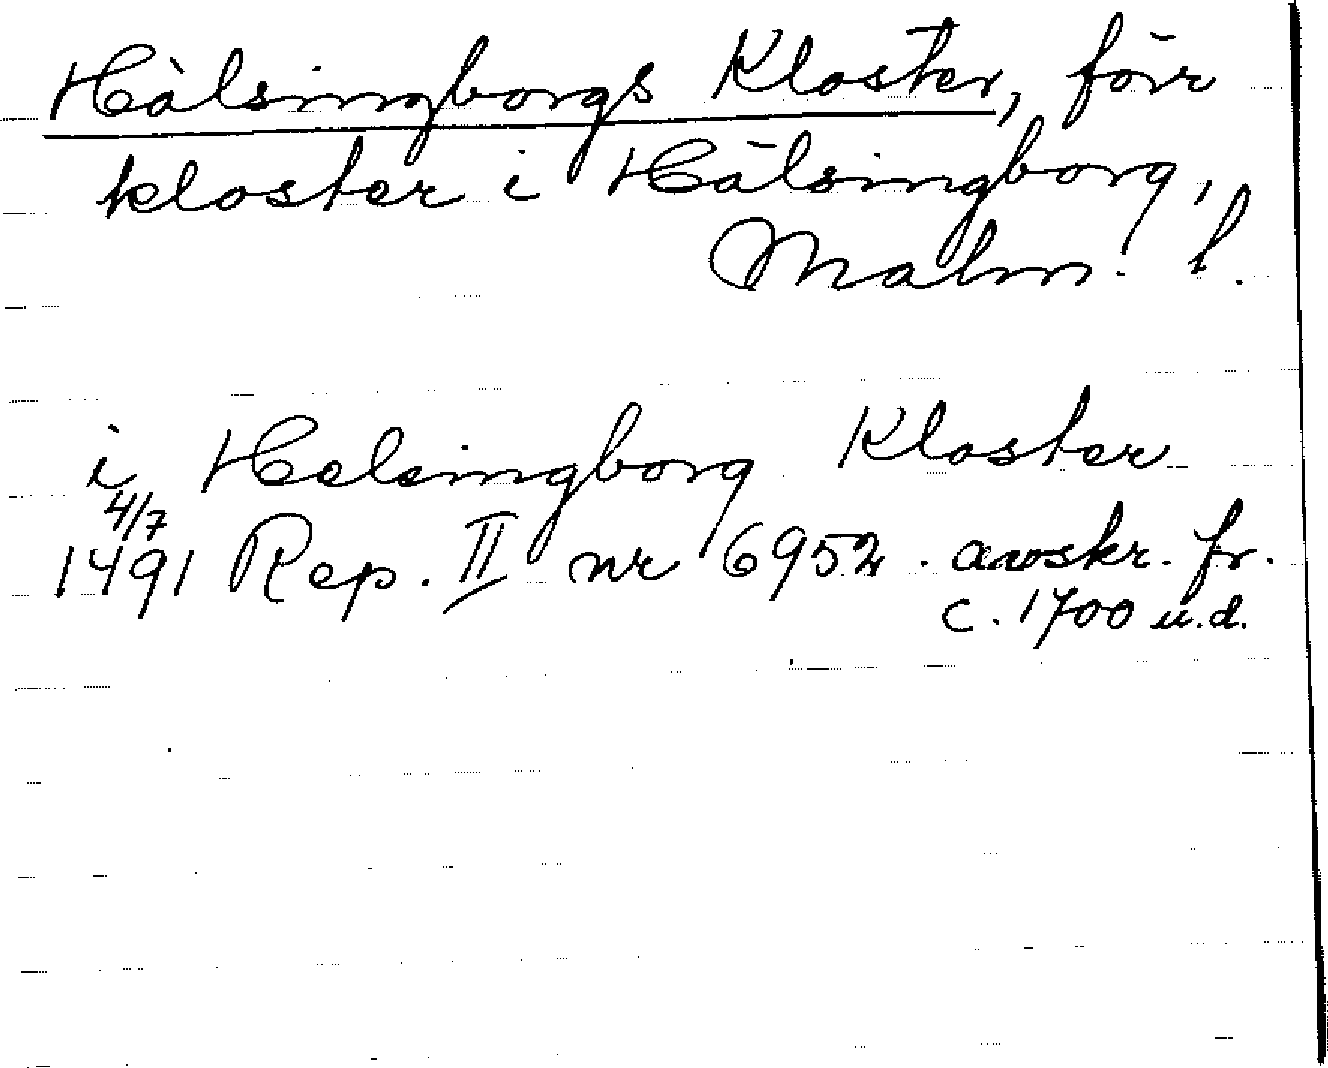 Hälsingborgs Kloster, förr
kloster i Hälsingborg,
Malm. l.
i Helsingborg Kloster
4/7
1491 Rep. II nr 6952. avskr. fr.
c. 1700 u.d.